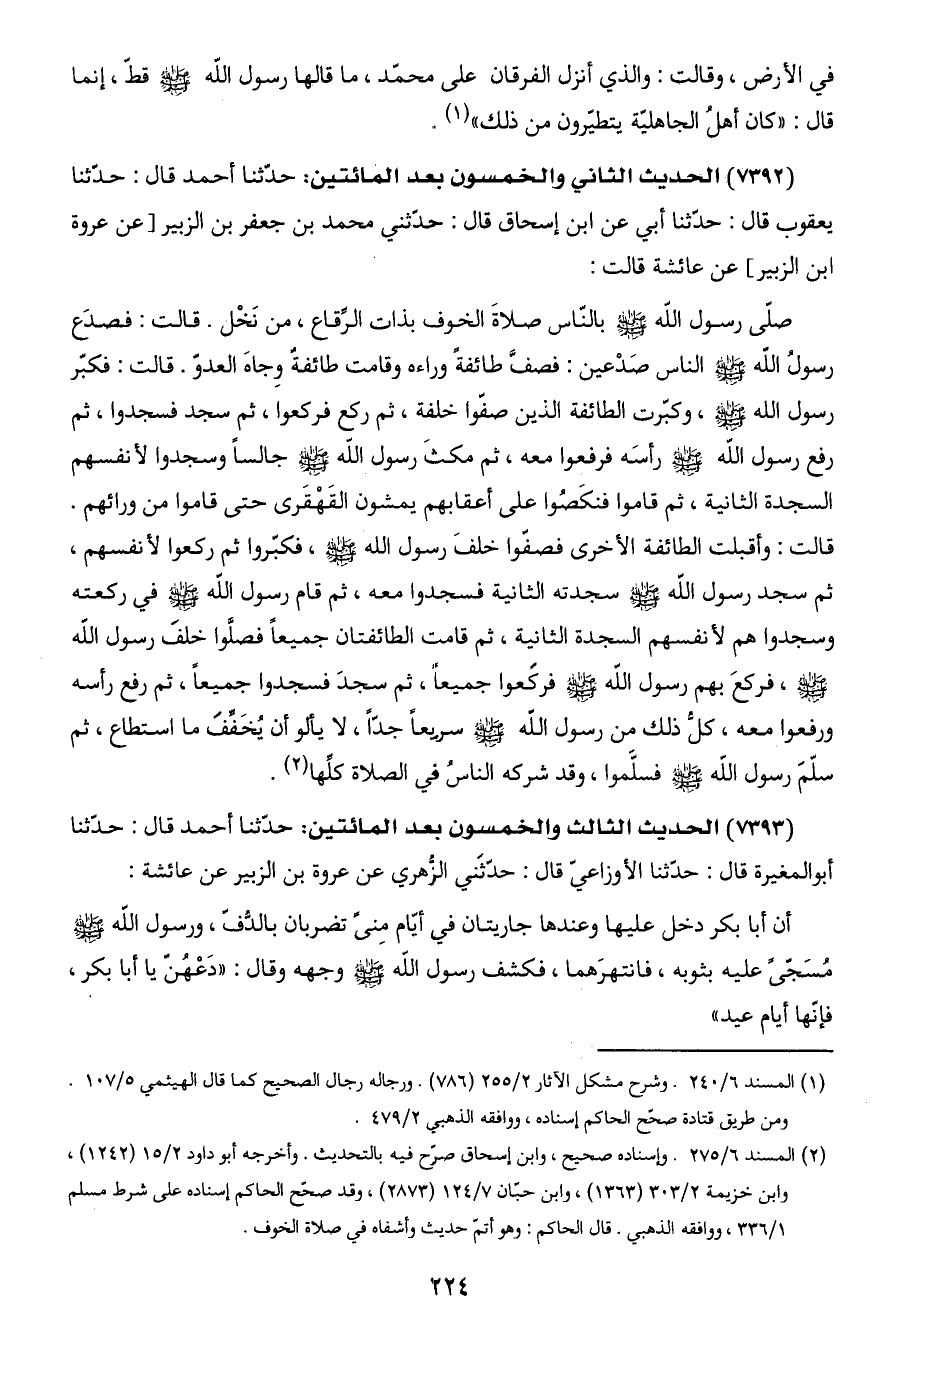 في الأرض ، وقالت : والذي أنزل الفرقان على محمّد ، ما قالها رسول اللّه ﷺ قطّ ، إنما
قال : «كان أهلُ الجاهليّة يتطيّرون من ذلك»(١) .
(٧٣٩٢) الحديث الثاني والخمسون بعد المائتين: حدّثنا أحمد قال : حدّثنا
يعقوب قال : حدّثنا أبي عن ابن إسحاق قال : حدّثني محمد بن جعفر بن الزبير [عن عروة
ابن الزبير] عن عائشة قالت :
صلّى رسول اللّه ﷺ بالنّاس صلاةَ الخوف بذات الرِّقاع ، من نَخْل . قالت : فصدَع
رسولُ اللّه ﷺ الناس صَدْعين : فصفَّ طائفةً وراءه وقامت طائفةٌ وِجاهَ العدوّ . قالت : فكبّر
رسول الله ﷺ ، وكبّرت الطائفة الذين صفّوا خلفة ، ثم ركع فركعوا ، ثم سجد فسجدوا ، ثم
رفع رسول اللّه ﷺ رأسَه فرفعوا معه ، ثم مكثَ رسول اللّه ﷺ جالساً وسجدوا لأنفسهم
السجدة الثانية ، ثم قاموا فنكَصُوا على أعقابهم يمشون القَهْقَرى حتى قاموا من ورائهم .
قالت : وأقبلت الطائفة الأخرى فصفّوا خلفَ رسول الله ﷺ ، فكبّروا ثم ركعوا لأنفسهم ،
ثم سجد رسول اللّه ﷺ سجدته الثانية فسجدوا معه ، ثم قام رسول اللّه ﷺ في ركعته
وسجدوا هم لأنفسهم السجدة الثانية ، ثم قامت الطائفتان جميعاً فصلَّوا خلفَ رسول اللّه
ﷺ ، فركعَ بهم رسول اللّه ﷺ فركَعوا جميعاً ، ثم سجدَ فسجدوا جميعاً ، ثم رفع رأسه
ورفعوا معه ، كلُّ ذلك من رسول اللّه ﷺ سريعاً جدّاً ، لا يألو أن يُخَفِّفَ ما استطاع ، ثم
سلّمَ رسول اللّه ﷺ فسلَّموا ، وقد شركه الناسُ في الصلاة كلِّها(٢) .
(٧٣٩٣) الحديث الثالث والخمسون بعد المائتين: حدّثنا أحمد قال : حدّثنا
أبوالمغيرة قال : حدّثنا الأوزاعيّ قال : حدّثَني الزُّهري عن عروة بن الزبير عن عائشة :
أن أبا بكر دخل عليها وعندها جاريتان في أيّام مِنىً تضربان بالدُّفّ ، ورسول اللّه ﷺ
مُسَجّىً عليه بثوبه ، فانتهرَهما ، فكشف رسول اللّه ﷺ وجهه وقال : «دَعْهُنّ يا أبا بكر ،
فإنّها أيام عيد»
(١) المسند ٢٤٠/٦ . وشرح مشكل الآثار ٢٥٥/٢ (٧٨٦) . ورجاله رجال الصحيح كما قال الهيثمي ١٠٧/٥ .
ومن طريق قتادة صحّح الحاكم إسناده ، ووافقه الذهبي ٤٧٩/٢ .
(٢) المسند ٢٧٥/٦ . وإسناده صحيح ، وابن إسحاق صرّح فيه بالتحديث . وأخرجه أبو داود ١٥/٢ (١٢٤٢) ،
وابن خزيمة ٣٠٣/٢ (١٣٦٣) ، وابن حبّان ١٢٤/٧ (٢٨٧٣) ، وقد صحّح الحاكم إسناده على شرط مسلم
٣٣٦/١ ، ووافقه الذهبي . قال الحاكم : وهو أتمّ حديث وأشفاه في صلاة الخوف .
٢٢٤